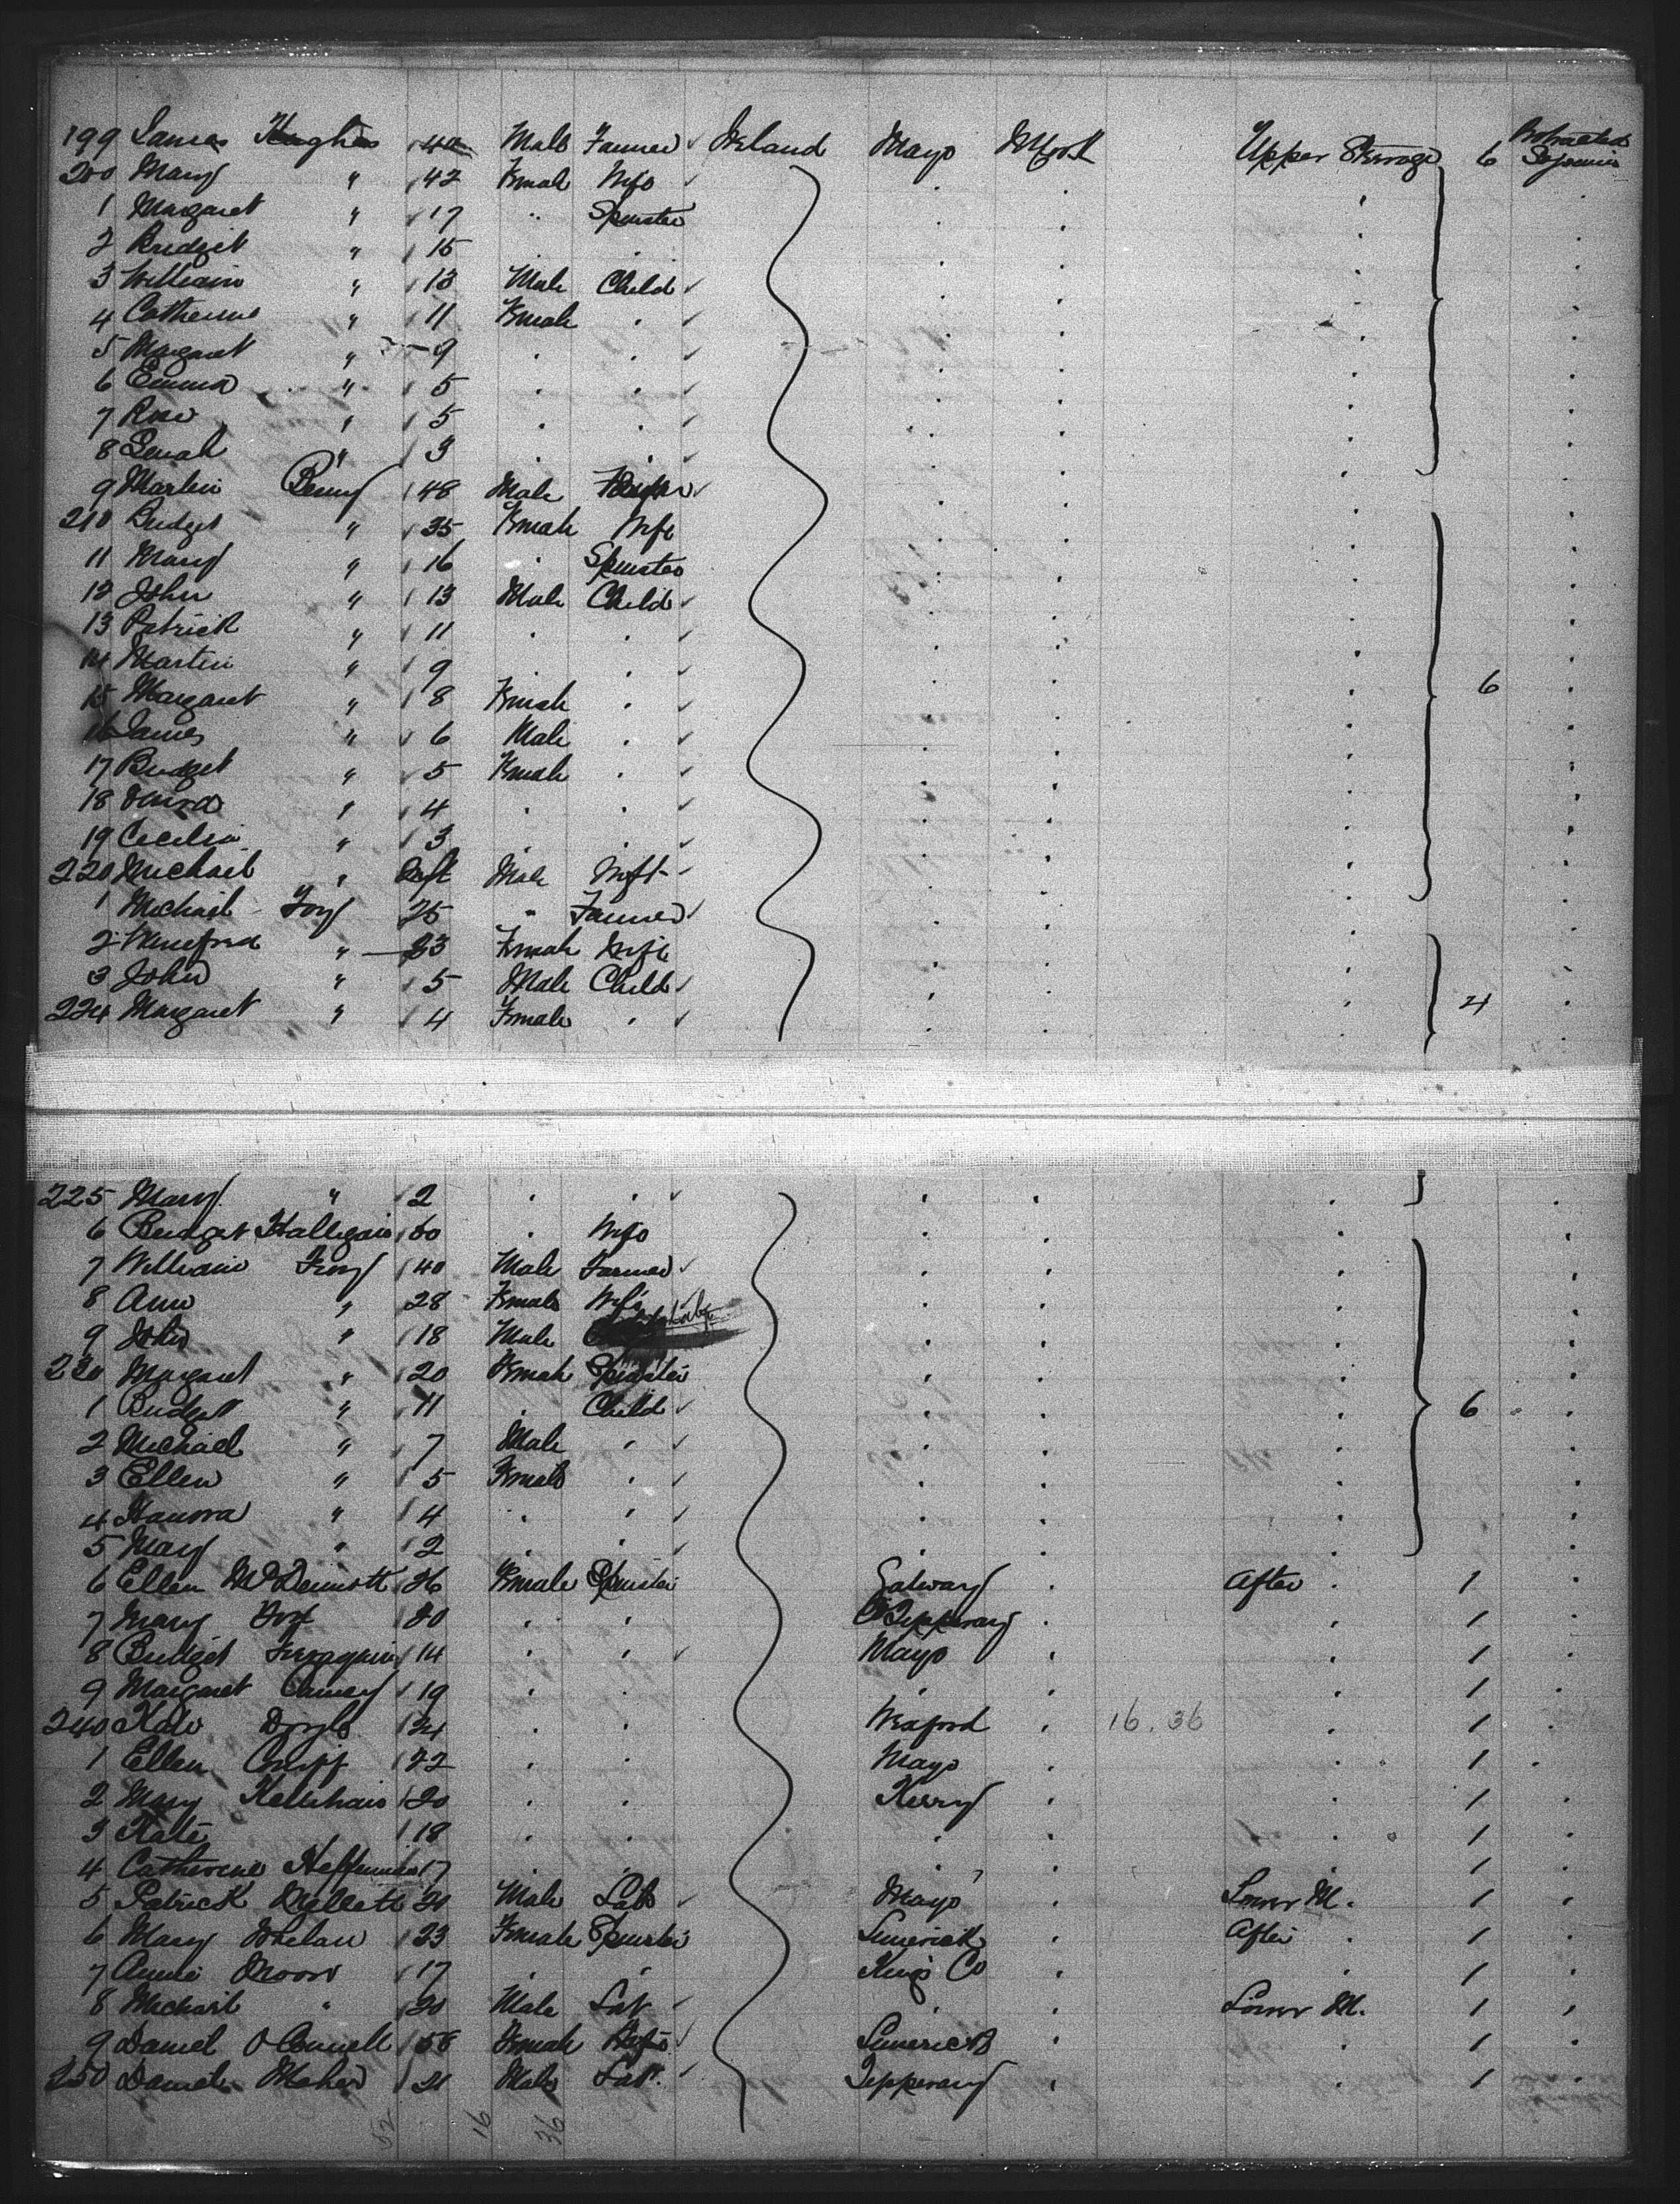 199 James Hughes 40 Male Farmer Ireland Mayo N York Upper Steerage 6 Protracted Sojourn
200 Mary " 42 Female Wife
1 Margaret " 17 " Spinster
2 Bridget " 15
3 William " 13 Male Child
4 Catherine " 11 Female
5 Margaret " 9
6 Emma " 5
7 Rose " 5
8 Sarah " 3
9 Martin 48 Male
210 Bridget " 35 Female Wife
11 Mary " 16 Spinster
12 John " 13 Male Child
13 Patrick " 11
14 Martin " 9
15 Margaret " 8 Female 6
16 James " 6 Male
17 Bridget " 5 Female
18 " 4
19 Cecilia " 3
220 Michael " Inft Male Inft
1 Michael Foy 25 " Farmer
2 Winefred " 23 Female Wife
3 John " 5 Male Child
224 Margaret " 4 Female 4
225 Mary " 2
6 Bridget Halligan 60 Wife
7 William 40 Male Farmer
8 Ann " 28 Female Wife
9 John " 18 Male
230 Margaret " 20 Female Spinster
1 Bridget " 11 Child 6
2 Michael " 7 Male
3 Ellen " 5 Female
4 Hanora " 4
5 Mary " 2
6 Ellen McDermott 26 Female Spinster Galway After 1
7 Mary Tipperary 1
8 Bridget 14 Mayo 1
9 Margaret 19 1
240 Kate Doyle Wexford 16.36 1
1 Ellen 22 Mayo 1
2 Mary Kellehair 20 Kerry 1
3 Kate 18 1
4 Catherine Heffernan 17 1
5 Patrick Mellett Male Lab Mayo Lower M. 1
6 Mary Whelan 23 Female Spinster Limerick After 1
7 Annie Moore 17 Kings Co 1
8 Michael " 20 Male Lab Lower M. 1
9 Daniel O Connell 58 Female Wife Limerick 1
250 Daniel Maher 21 Male Lab. Tipperary 1
52 16 36